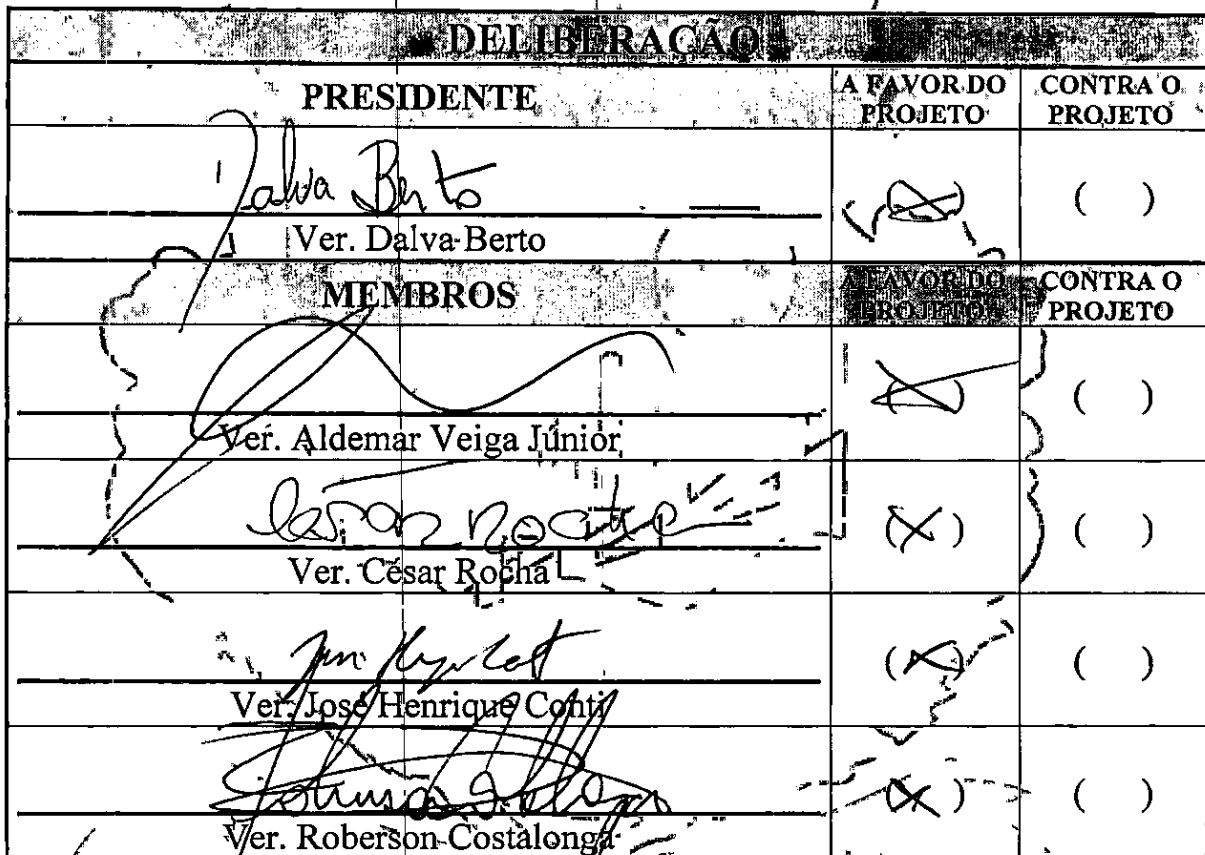 DELIBERAÇÃO
PRESIDENTE
A FAVOR DO PROJETO
CONTRA O PROJETO
Dalva Berto
(X)
( )
Ver. Dalva Berto
MEMBROS
A FAVOR DO PROJETO
CONTRA O PROJETO
(X)
( )
Ver. Aldemar Veiga Júnior
César Rocha
(X)
( )
Ver. César Rocha
(X)
( )
Ver. José Henrique Conti
(X)
( )
Ver. Roberson Costalonga